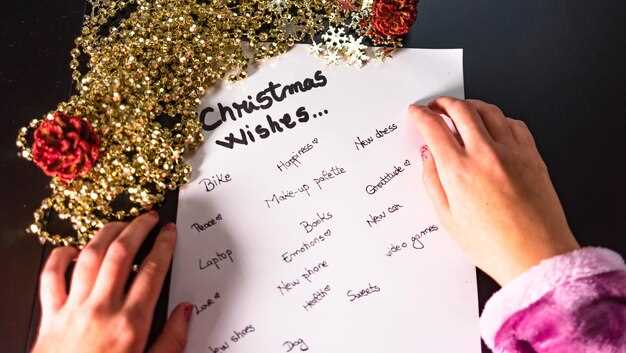 Christmas
Wishes...
Bike
Peace♡
Laptop
Love♡
New shoes
Happiness♡
Make-up palette
Books
Emotions♡
New phone
Health♡
Dog
New dress
Gratitude♡
New car
video games
Sweets